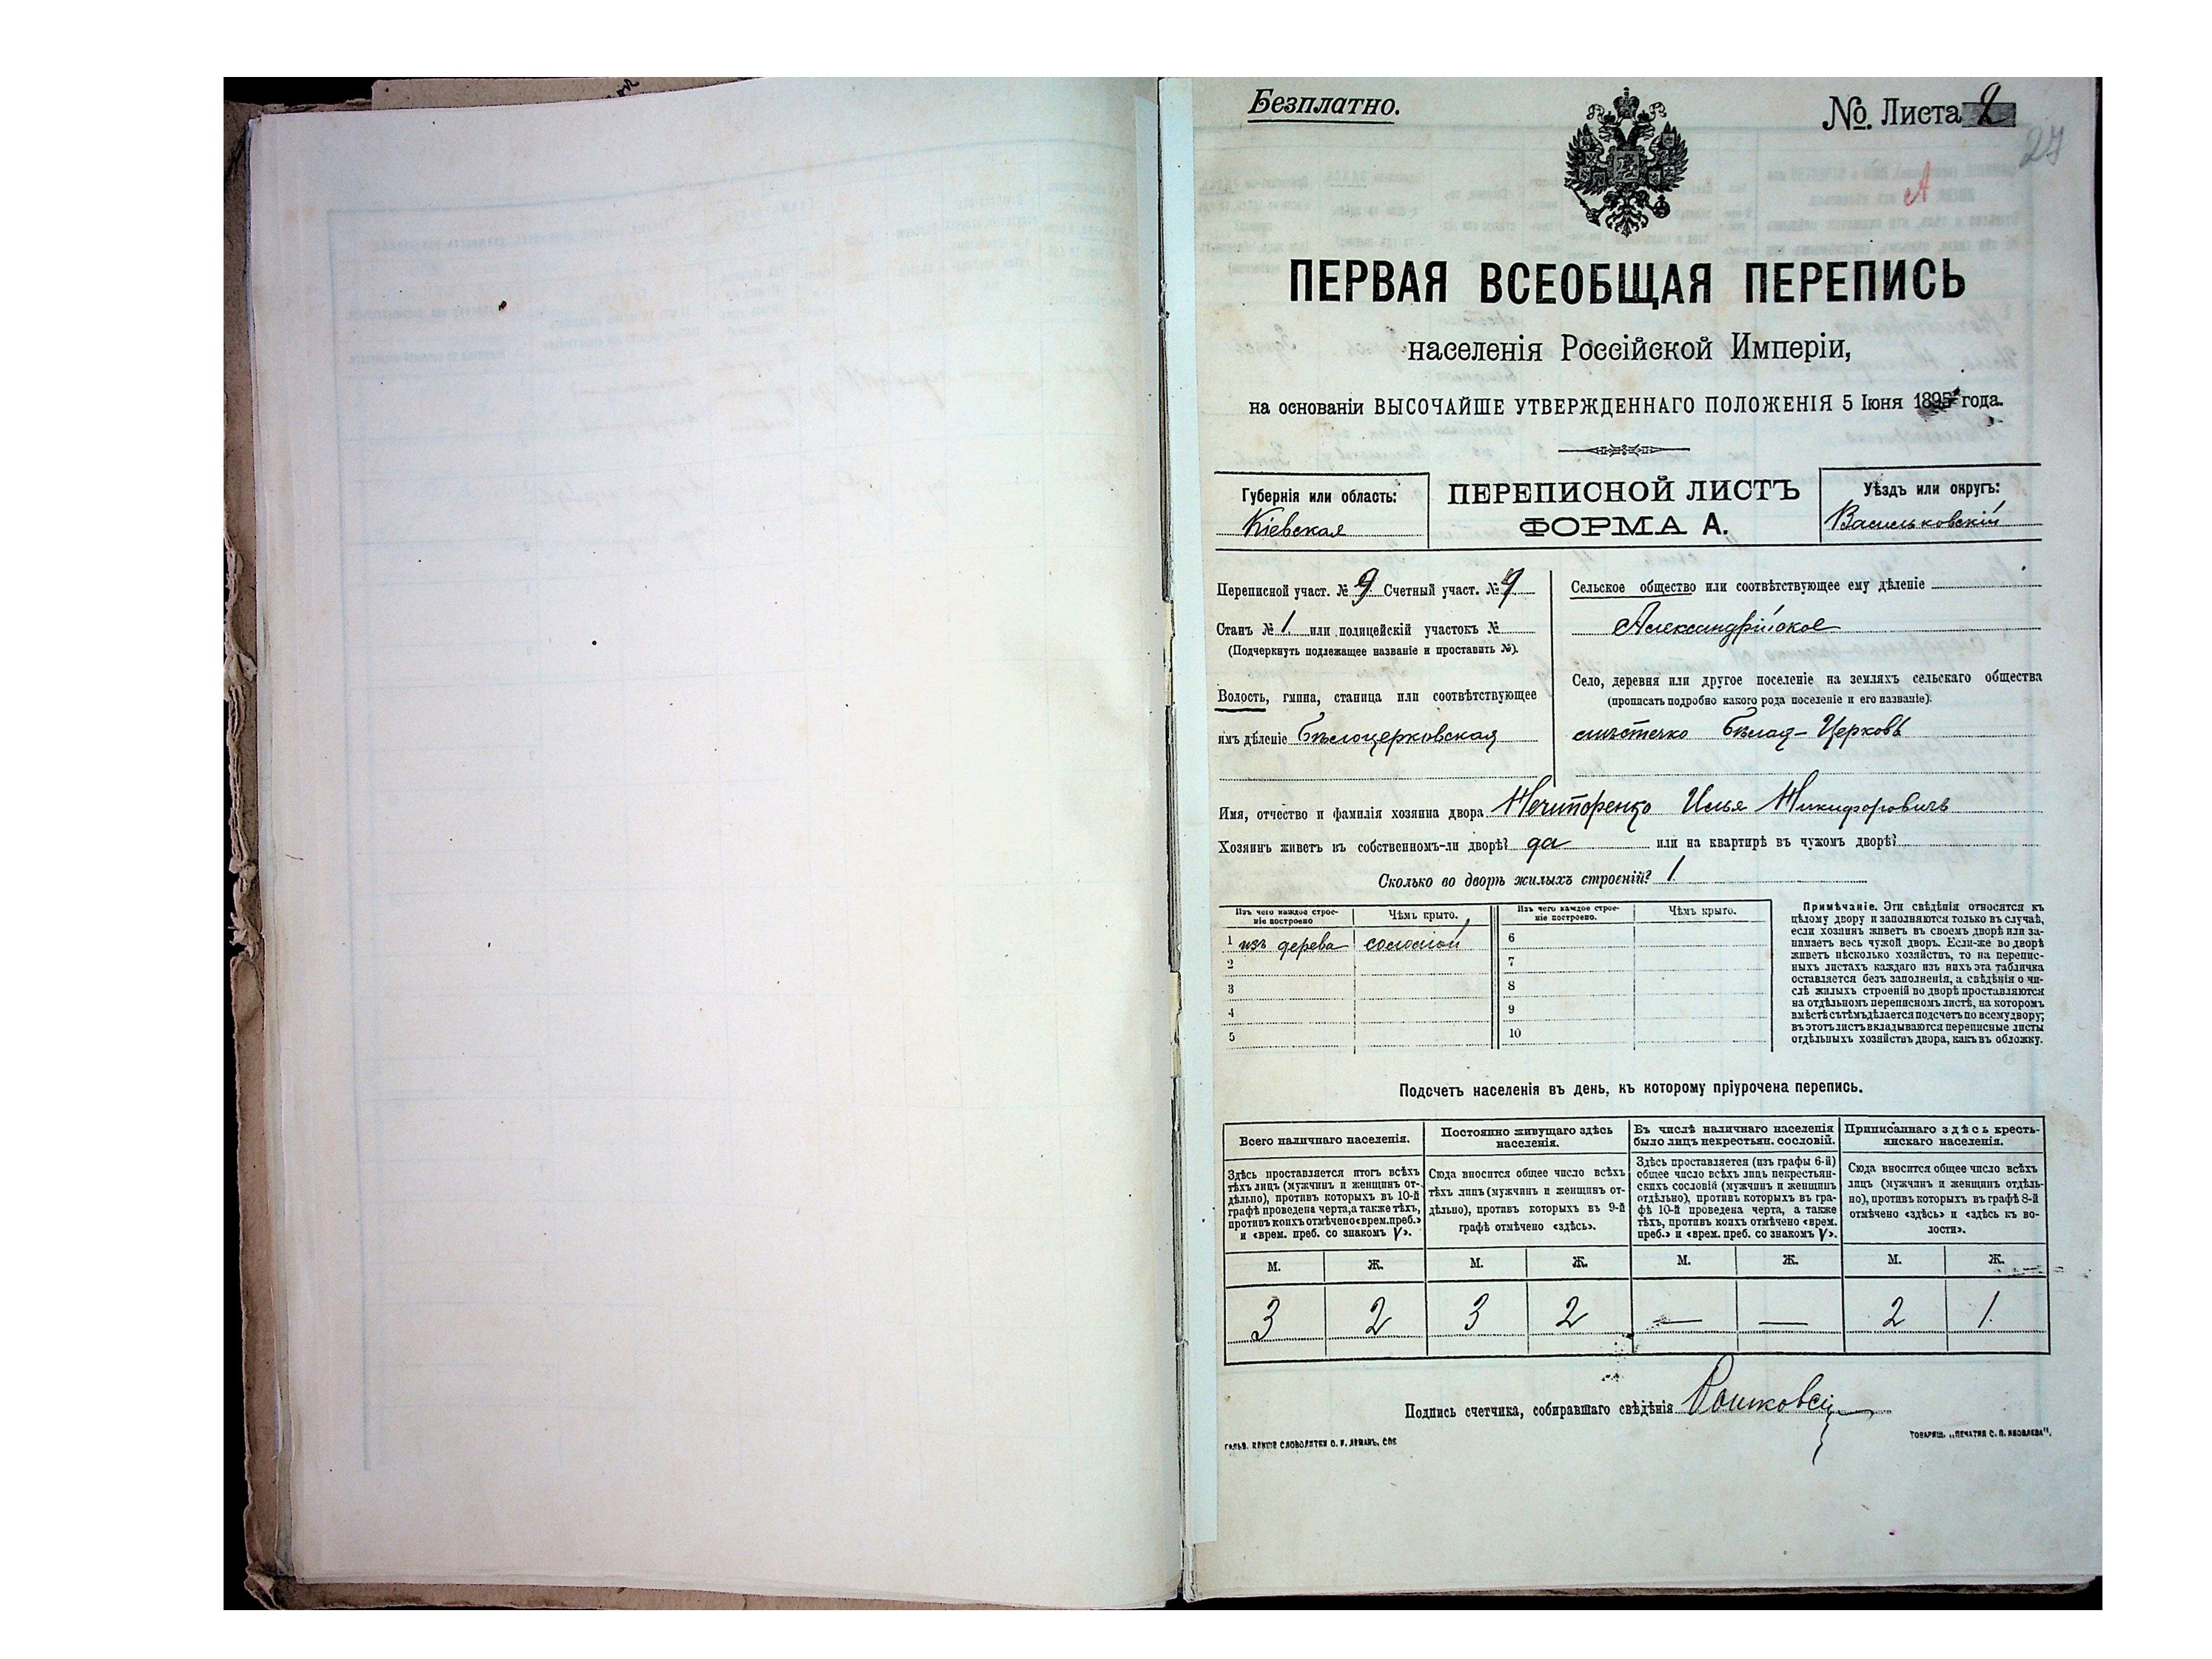 Безплатно.
№ Листа 2
27
А
ПЕРВАЯ ВСЕОБЩАЯ ПЕРЕПИСЬ
населенія Россійской Имперіи,
на основаніи ВЫСОЧАЙШЕ УТВЕРЖДЕННАГО ПОЛОЖЕНІЯ 5 Іюня 1895 года.
Губернія или область:
Кіевская
ПЕРЕПИСНОЙ ЛИСТЪ
ФОРМА А.
Уѣздъ или округъ:
Васильковскій
Переписной участ. № 9 Счетный участ. № 9
Станъ № 1 или полицейскій участокъ №
(Подчеркнуть подлежащее названіе и проставить №).
Волость, гмина, станица или соотвѣтствующее
имъ дѣленіе Бѣлоцерковская
Сельское общество или соотвѣтствующее ему дѣленіе
Александрійское
Село, деревня или другое поселеніе на земляхъ сельскаго общества
(прописать подробно какого рода поселеніе и его названіе).
мѣстечко Бѣлая-Церковь
Имя, отчество и фамилія хозяина двора Нечипоренко Илья Никифоровичъ
Хозяинъ живетъ въ собственномъ-ли дворѣ? да или на квартирѣ въ чужомъ дворѣ?
Сколько во дворѣ жилыхъ строеній? 1
Изъ чего каждое строе-
ніе построено
Чѣмъ крыто.
Изъ чего каждое строе-
ніе построено.
Чѣмъ крыто.
1 изъ дерева соломой 6
2 7
3 8
4 9
5 10
Примѣчаніе. Эти свѣдѣнія относятся къ
цѣлому двору и заполняются только въ случаѣ,
если хозяинъ живетъ въ своемъ дворѣ или за-
нимаетъ весь чужой дворъ. Если-же во дворѣ
живетъ нѣсколько хозяйствъ, то на перепис-
ныхъ листахъ каждаго изъ нихъ эта табличка
оставляется безъ заполненія, а свѣдѣнія о чи-
слѣ жилыхъ строеній во дворѣ проставляются
на отдѣльномъ переписномъ листѣ, на которомъ
вмѣстѣ съ тѣмъ дѣлается подсчетъ по всему двору;
въ этотъ листъ вкладываются переписные листы
отдѣльныхъ хозяйствъ двора, какъ въ обложку.
Подсчетъ населенія въ день, къ которому пріурочена перепись.
Всего наличнаго населенія.
Здѣсь проставляется итогъ всѣхъ
тѣхъ лицъ (мужчинъ и женщинъ от-
дѣльно), противъ которыхъ въ 10-й
графѣ проведена черта, а также тѣхъ,
противъ коихъ отмѣчено «врем. преб.»
и «врем. преб. со знакомъ V».
Постоянно живущаго здѣсь
населенія.
Сюда вносится общее число всѣхъ
тѣхъ лицъ (мужчинъ и женщинъ от-
дѣльно), противъ которыхъ въ 9-й
графѣ отмѣчено «здѣсь».
Въ числѣ наличнаго населенія
было лицъ некрестьян. сословій.
Здѣсь проставляется (изъ графы 6-й)
общее число всѣхъ лицъ некрестьян-
скихъ сословій (мужчинъ и женщинъ
отдѣльно), противъ которыхъ въ гра-
фѣ 10-й проведена черта, а также
тѣхъ, противъ коихъ отмѣчено «врем.
преб.» и «врем. преб. со знакомъ V».
Приписаннаго здѣсь кресть-
янскаго населенія.
Сюда вносится общее число всѣхъ
лицъ (мужчинъ и женщинъ отдѣль-
но), противъ которыхъ въ графѣ 8-й
отмѣчено «здѣсь» и «здѣсь къ во-
лости».
М. Ж. М. Ж. М. Ж. М. Ж.
3 2 3 2 — — 2 1
Подпись счетчика, собиравшаго свѣдѣнія
ГАЛЬВ. КЛИШЕ СЛОВОЛИТНИ О. И. ЛЕМАНЪ, СПБ
ТОВАРИЩ. „ПЕЧАТНЯ С. П. ЯКОВЛЕВА".